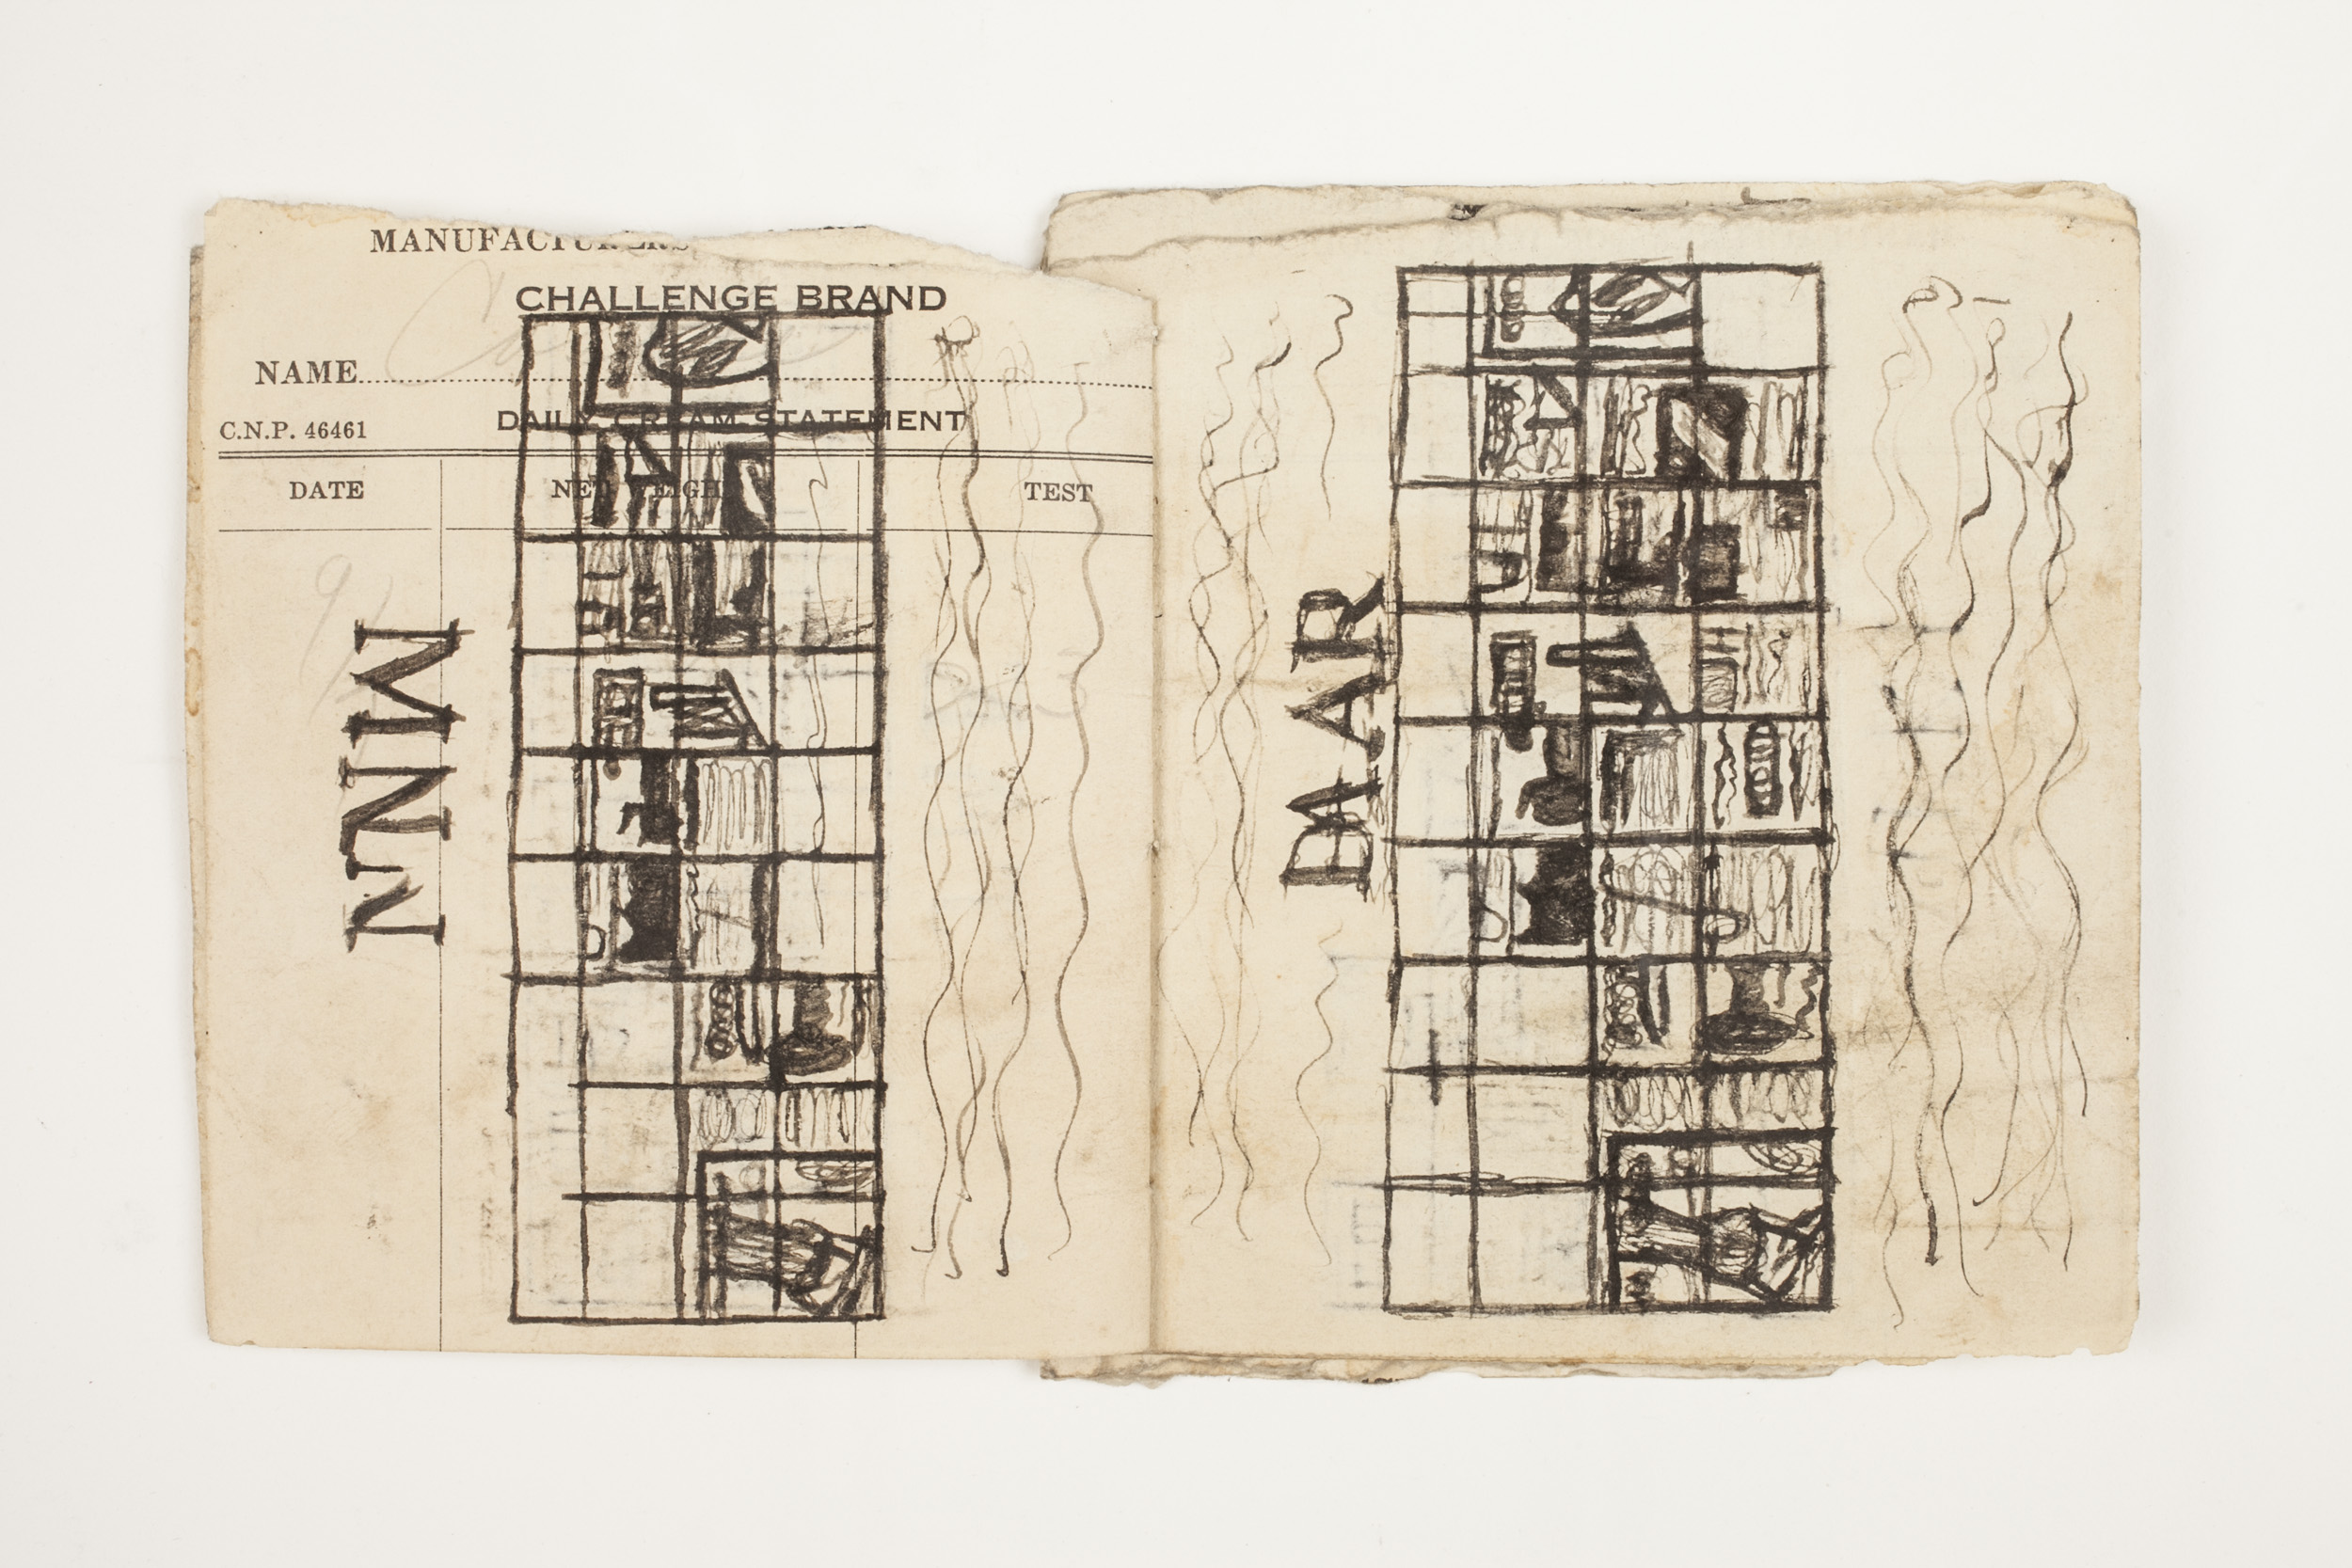 MANUFACTURERS
CHALLENGE BRAND
NAME
C.N.P. 46461
DAILY CREAM STATEMENT
DATE
NET WEIGHT
TEST